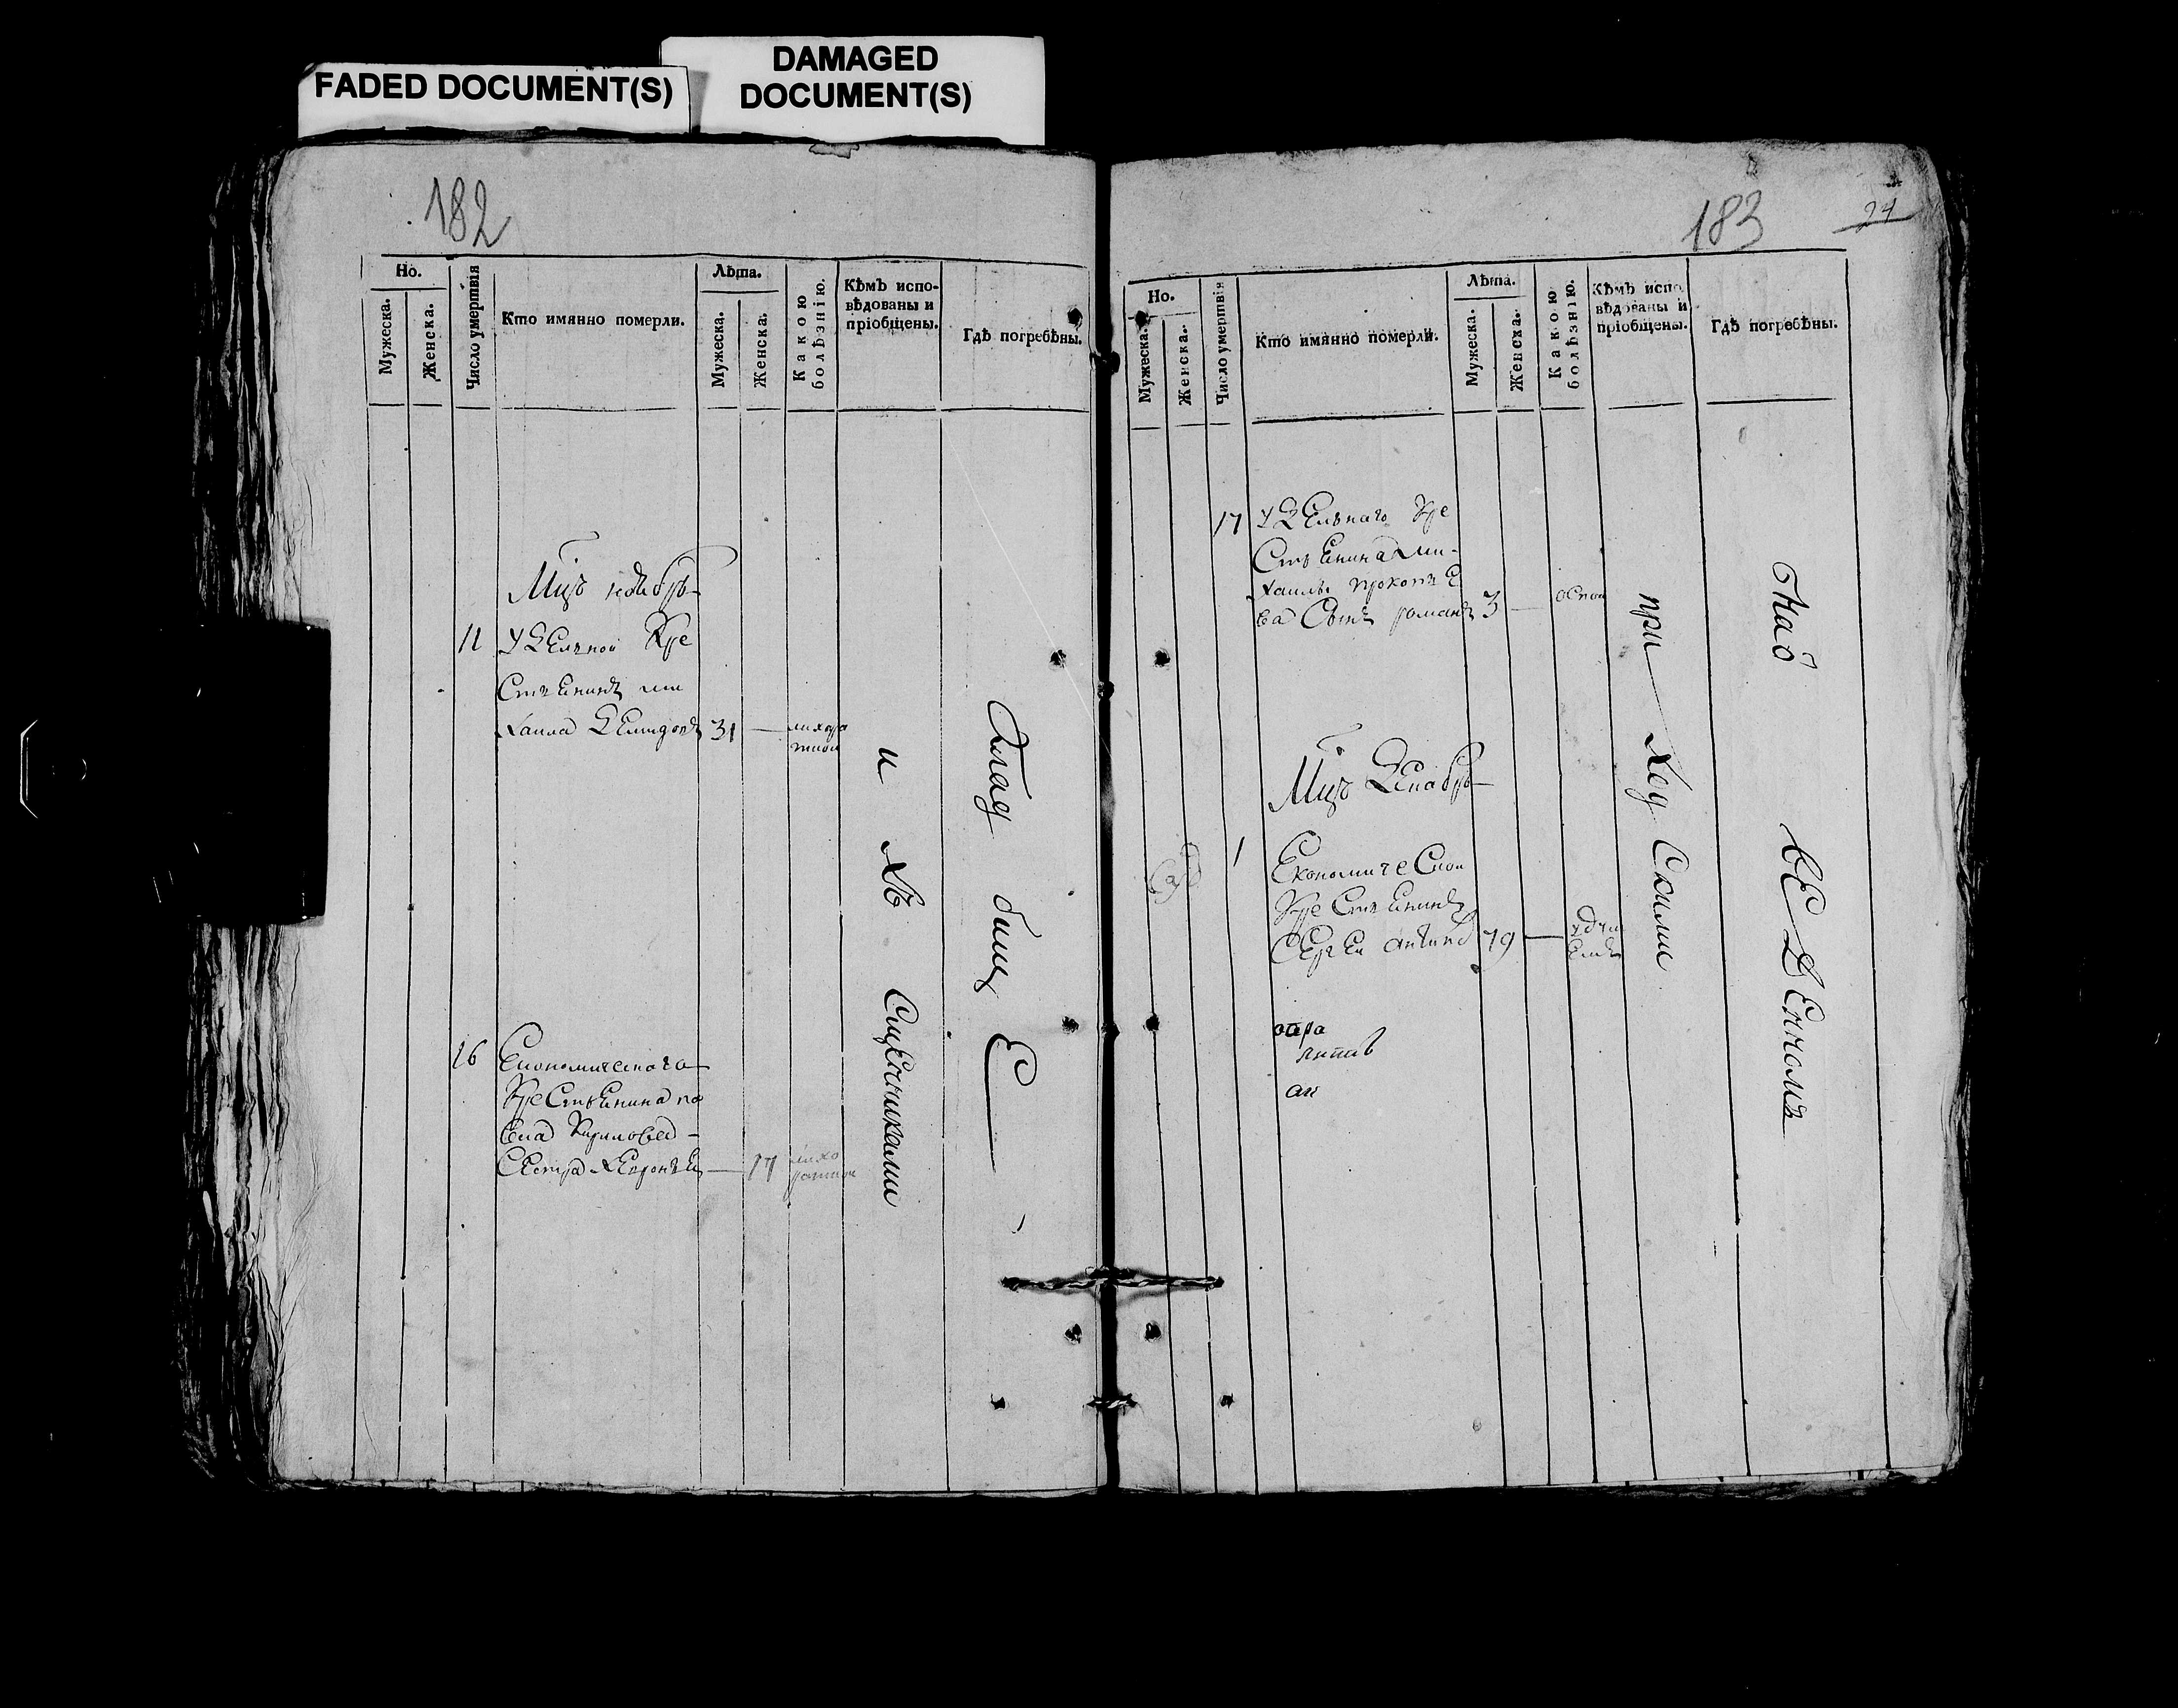 FADED DOCUMENT(S)
DAMAGED
DOCUMENT(S)
182
Но.
Мужеска.
Женска.
Число умертвія
Кто имянно померли.
Лѣта.
Мужеска.
Женска.
Какою
болѣзнію.
Кѣмъ испо-
вѣдованы и
пріобщены.
Гдѣ погребѣны.
Мцъ ноябрь
11 удельной кре
стьенинъ ми
хаила 31 — лихора
ткой
16 Економическаго
крестьенина па
вла
сестра 17 лихо
раткой
и хъ священниками
кладбище
183
24
Но.
Мужеска.
Женска.
Число умертвія
Кто имянно померли.
Лѣта.
Мужеска.
Женска.
Какою
болѣзнію.
Кѣмъ испо
вѣдованы и
пріобщены.
Гдѣ погребѣны.
17 уделънаго кре
стьенина ми-
хаилы прокопье
ва сынъ романъ 3 — оспой
Мцъ декабрь
1 Економической
крестьенинъ
сергей 79 —
приходскими
на
веденномъ